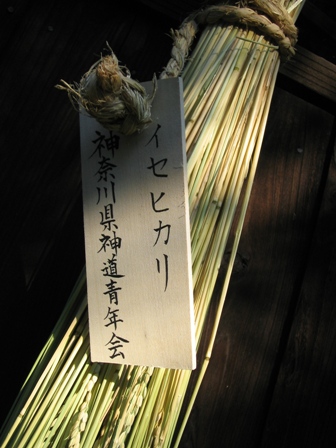 イセヒカリ
神奈川県神道青年会